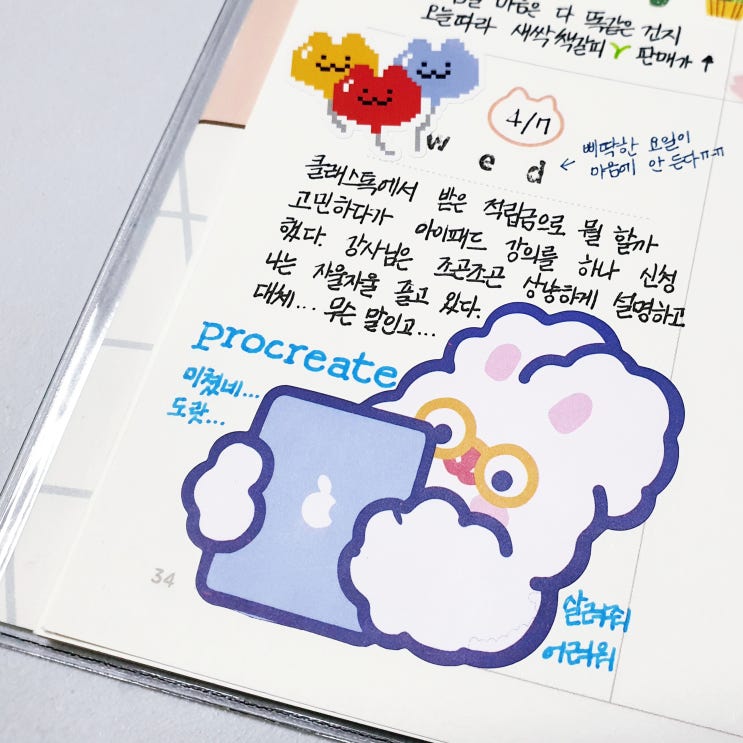 마음은 다 똑같은 건지
오늘따라 새싹책갈피 판매가 ↑
4/7
wed
← 삐딱한 요일이
마음에 안 든다ㅠㅠ
클래스톡에서 받은 적립금으로 뭘 할까
고민하다가 아이패드 강의를 하나 신청
했다. 강사님은 조곤조곤 상냥하게 설명하고
나는 자울자울 졸고 있다.
대체... 무슨 말인고...
procreate
미쳤네...
도랏...
살려줘
어려워
34